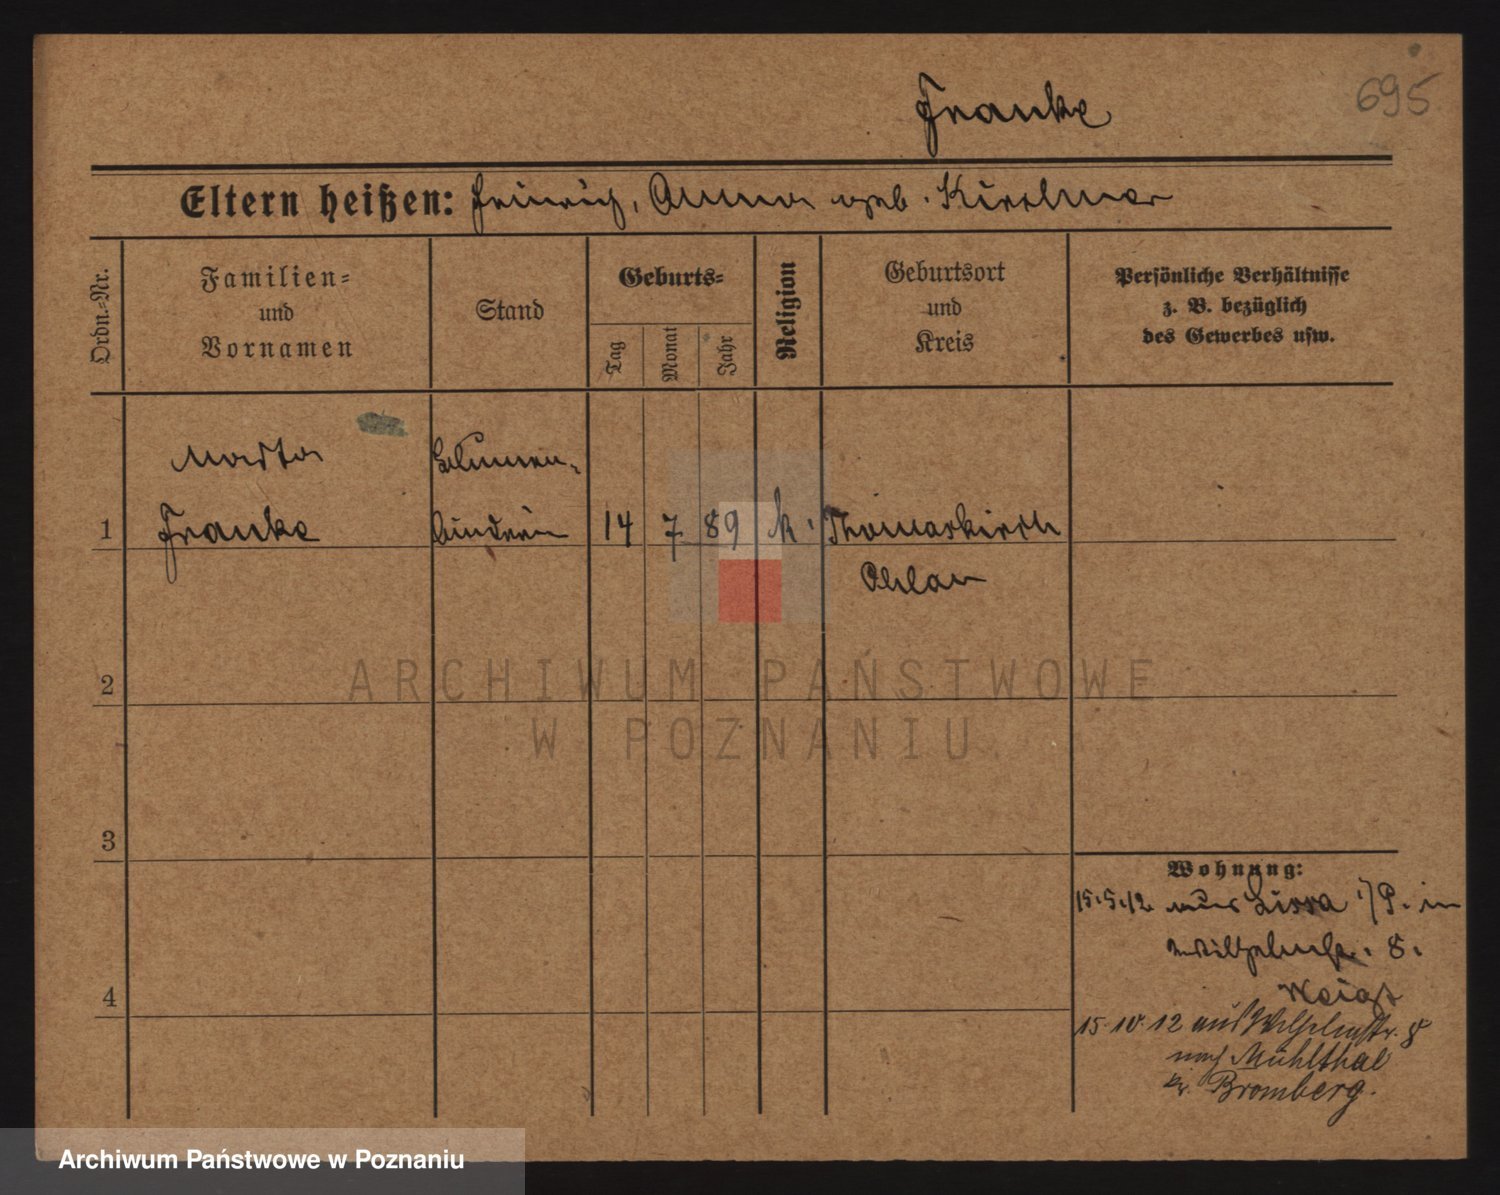 Franke
695
Eltern heißen: Heinrich, Anna geb.
Ordn.-Nr.
Familien-
und
Vornamen
Stand
Geburts-
Tag
Monat
Jahr
Religion
Geburtsort
und
Kreis
Persönliche Verhältnisse
z. B. bezüglich
des Gewerbes usw.
Marta
Blumen-
1 Franke binderin 14 7 89 k. Thomaskirch
Ohlau
2
3
4
Wohnung:
15.5.12 aus Lissa i/P. in
Wilhelmstr. 8.
15.10.12 aus Wilhelmstr. 8
nach Mühlthal
Kr. Bromberg.
ARCHIWUM PAŃSTWOWE
W POZNANIU
Archiwum Państwowe w Poznaniu